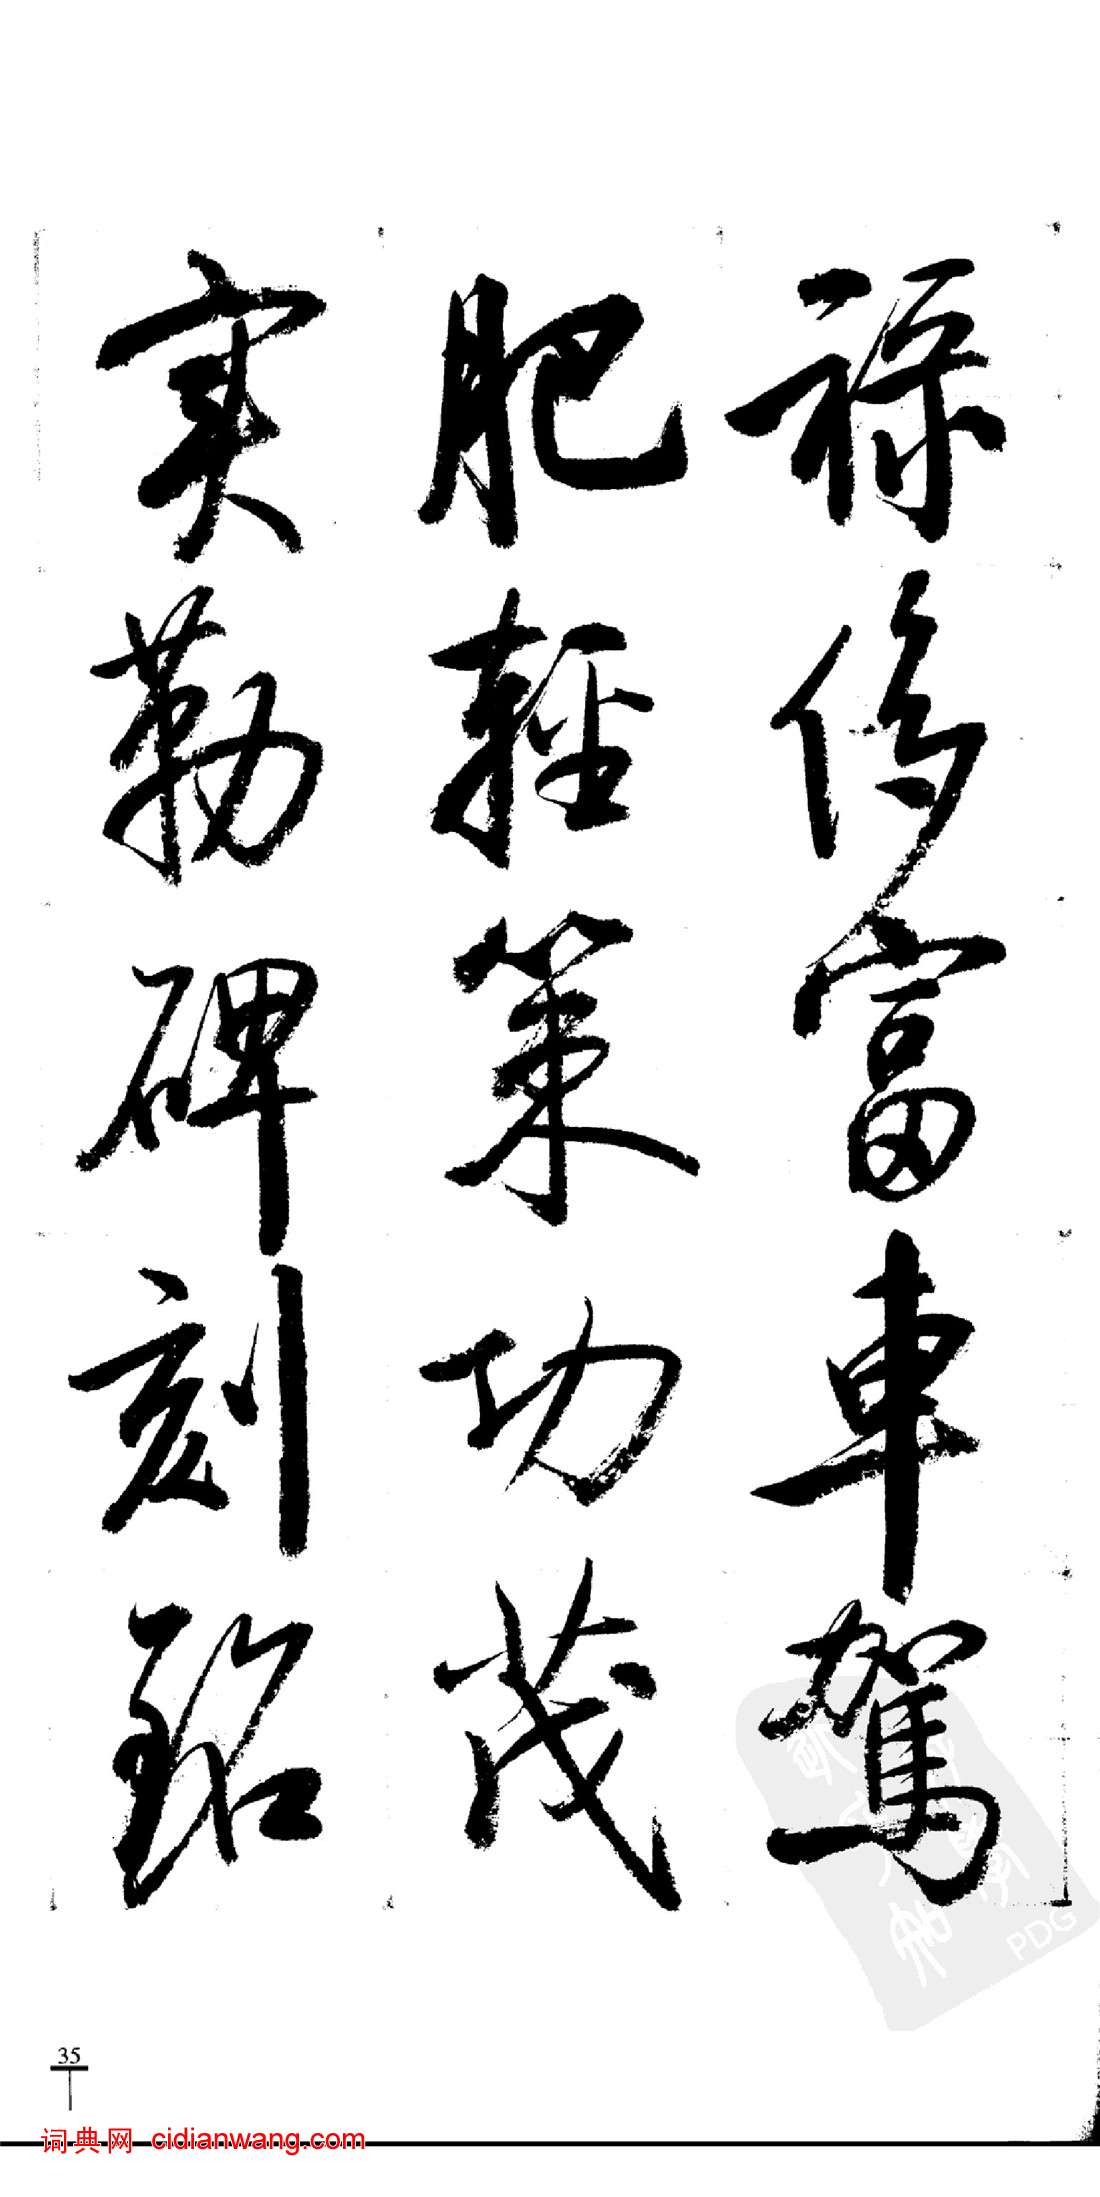 禄侈富車駕
肥輕策功茂
实勒碑刻銘
35
词典网 cidianwang.com
PDG